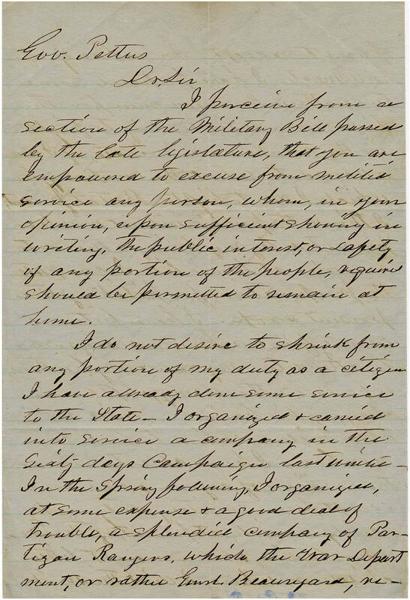 Gov. Pettus
Dr. Sir
I perceive from a
section of the Military Bill passed
by the late legislature, that you are
empowered to excuse from militia
service any person, whom, in your
opinion, upon sufficient showing in
writing, the public interest, or safety
of any portion of the people, require
should be permitted to remain at
home.
I do not desire to shrink from
any portion of my duty as a citizen
I have already done some service
to the State – I organized & carried
into service a company in the
Sixty days Campaign last winter –
In the Spring following, I organized,
at some expense & a good deal of
trouble, a splendid company of Par-
tizan Rangers, which the War Depart
ment, or rather Genl. Beauregard, re-